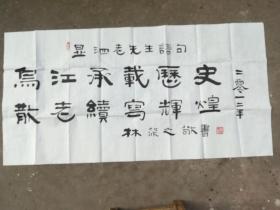 泗老先生詩句
烏江承載歷史
散老續寫輝煌
二零一二年
林之敬書